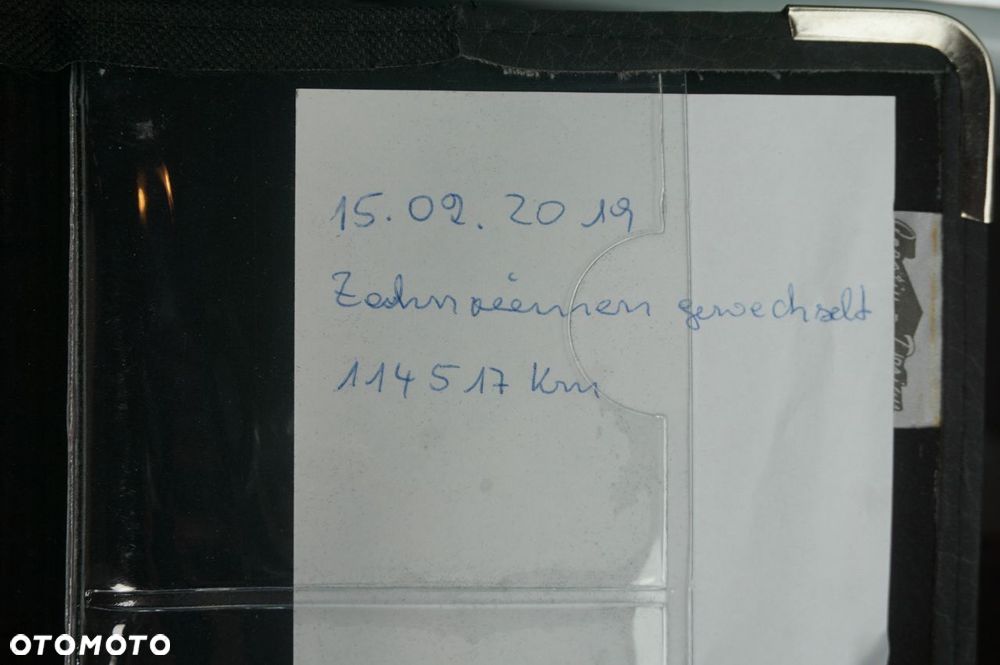 15.02.2019
Zahnriemen gewechselt
114517 Km
OTOMOTO